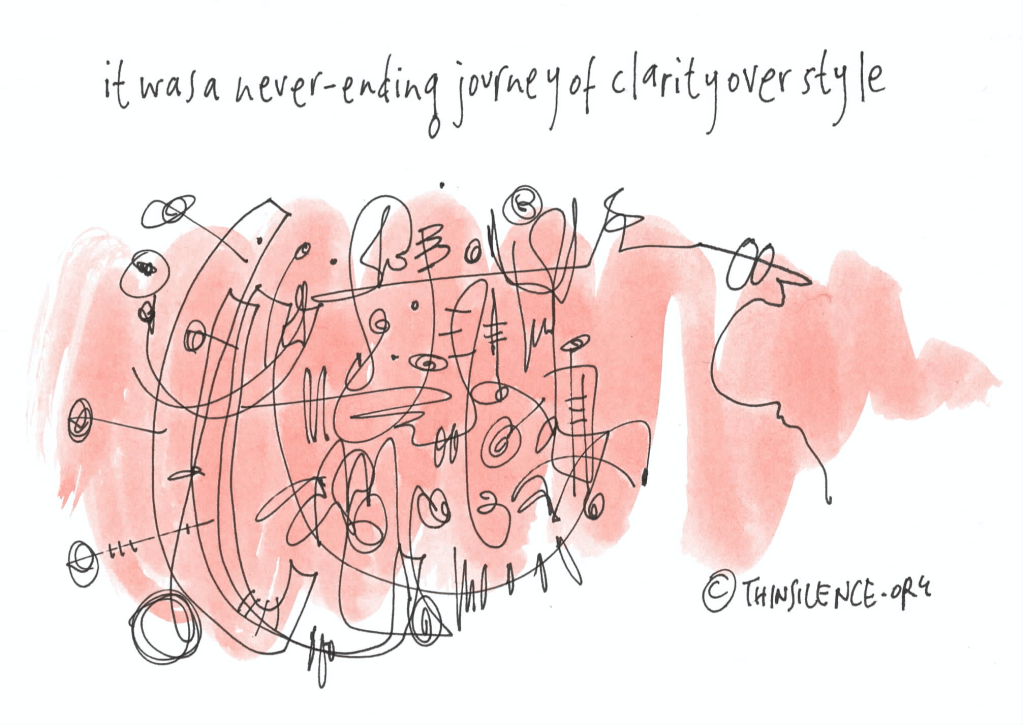 it was a never-ending journey of clarity over style
© THINSILENCE.ORG